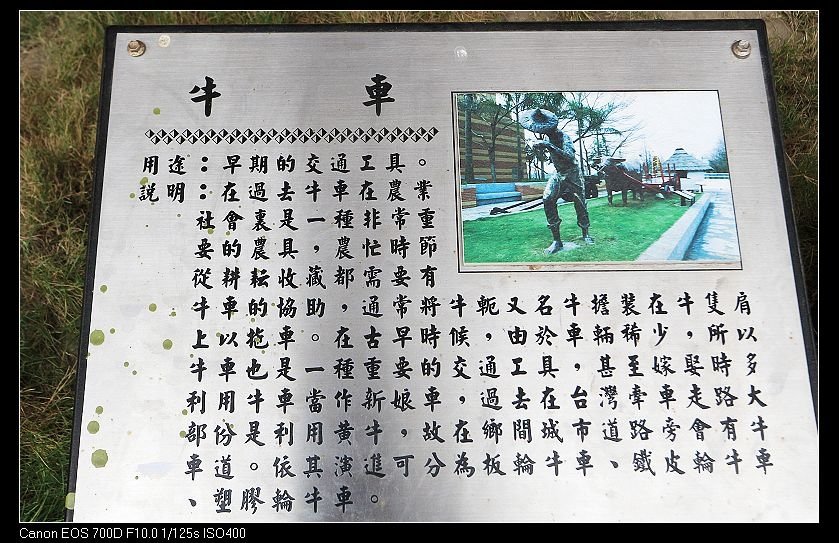 牛車
用途：早期的交通工具。
說明：在過去牛車在農業
社會裏是一種非常重
要的農具，農忙時節
從耕耘收藏都需要有
牛車的協助，通常將牛軛又名牛擔裝在牛隻肩
上以拖車。在古早時候，由於車輛稀少，所以
牛車也是一種重要的交通工具，甚至嫁娶時多
利用牛車當作新娘車，過去在台灣牽車走路大
部份是利用黃牛，故在鄉間城市道路旁會有牛
車道。依其演進可分為板輪牛車、鐵皮輪牛車
、塑膠輪牛車。
Canon EOS 700D F10.0 1/125s ISO400